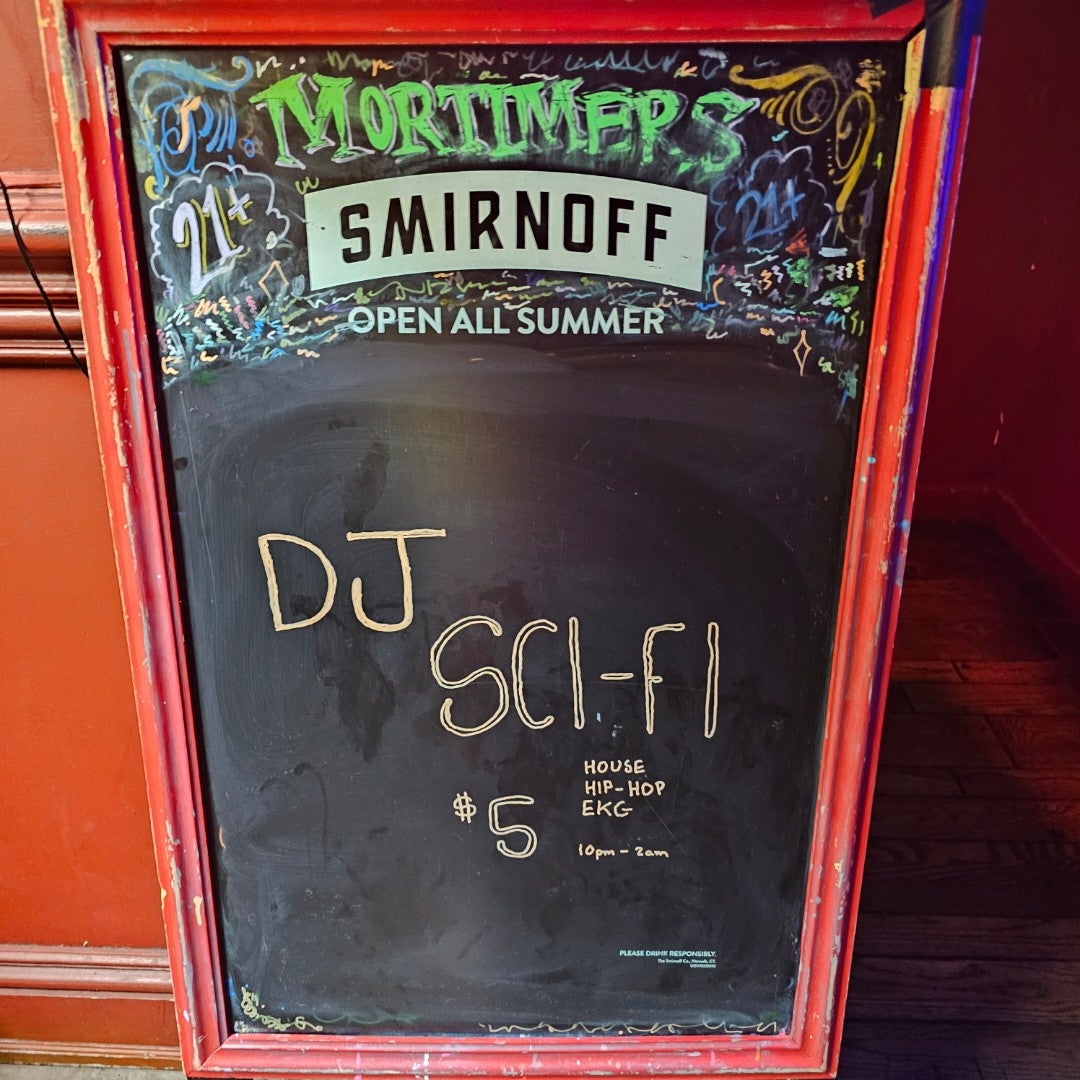 MORTIMERS
21+
21+
SMIRNOFF
OPEN ALL SUMMER
DJ
SCI-FI
HOUSE
HIP-HOP
EKG
$5
10pm - 2am
PLEASE DRINK RESPONSIBLY.
The Smirnoff Co., Norwalk, CT.